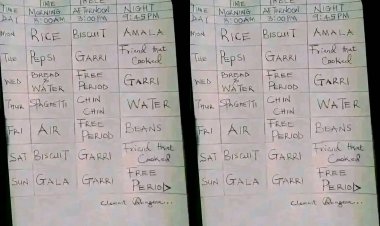 TIME TABLE TIME TABLE
TIME MORNING AFTERNOON NIGHT TIME MORNING AFTERNOON NIGHT
DAY 8:00AM 3:00PM 9:45PM DAY 8:00AM 3:00PM 9:45PM
MON RICE BISCUIT AMALA MON RICE BISCUIT AMALA
TUE PEPSI GARRI Friend that Cooked TUE PEPSI GARRI Friend that Cooked
WED BREAD & WATER FREE PERIOD GARRI WED BREAD & WATER FREE PERIOD GARRI
THUR SPAGHETTI CHIN CHIN WATER THUR SPAGHETTI CHIN CHIN WATER
FRI AIR FREE PERIOD BEANS FRI AIR FREE PERIOD BEANS
SAT BISCUIT GARRI Friend that Cooked SAT BISCUIT GARRI Friend that Cooked
SUN GALA GARRI FREE PERIOD SUN GALA GARRI FREE PERIOD